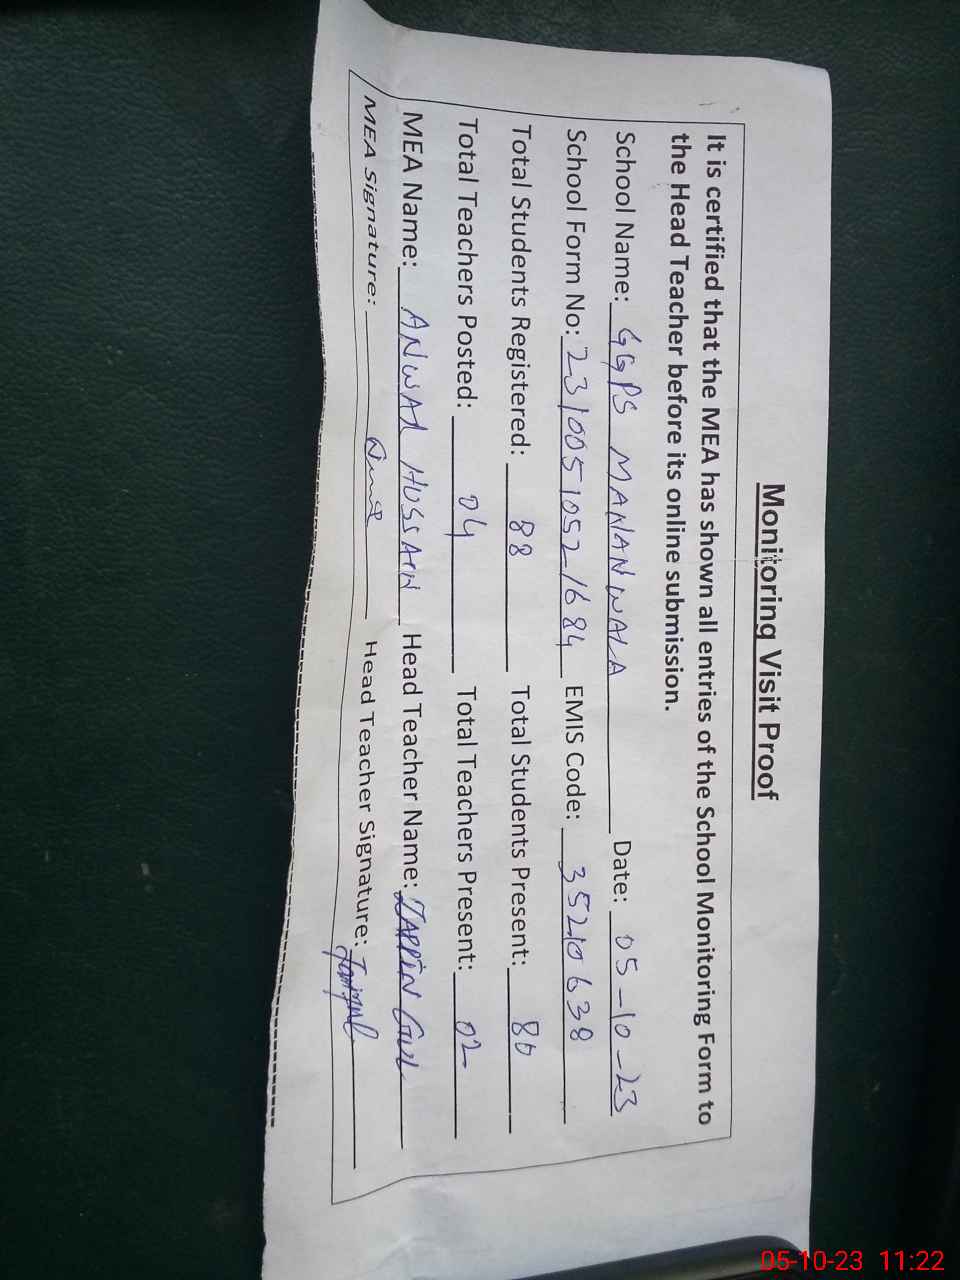 Monitoring Visit Proof
It is certified that the MEA has shown all entries of the School Monitoring Form to
the Head Teacher before its online submission.
School Name: GGPS MANANWALA Date: 05-10-23
School Form No: 23100510521684 EMIS Code: 35210638
Total Students Registered: 88 Total Students Present: 80
Total Teachers Posted: 04 Total Teachers Present: 02
MEA Name: ANWAR HUSSAIN Head Teacher Name: GUL
MEA Signature: Head Teacher Signature:
05-10-23 11:22